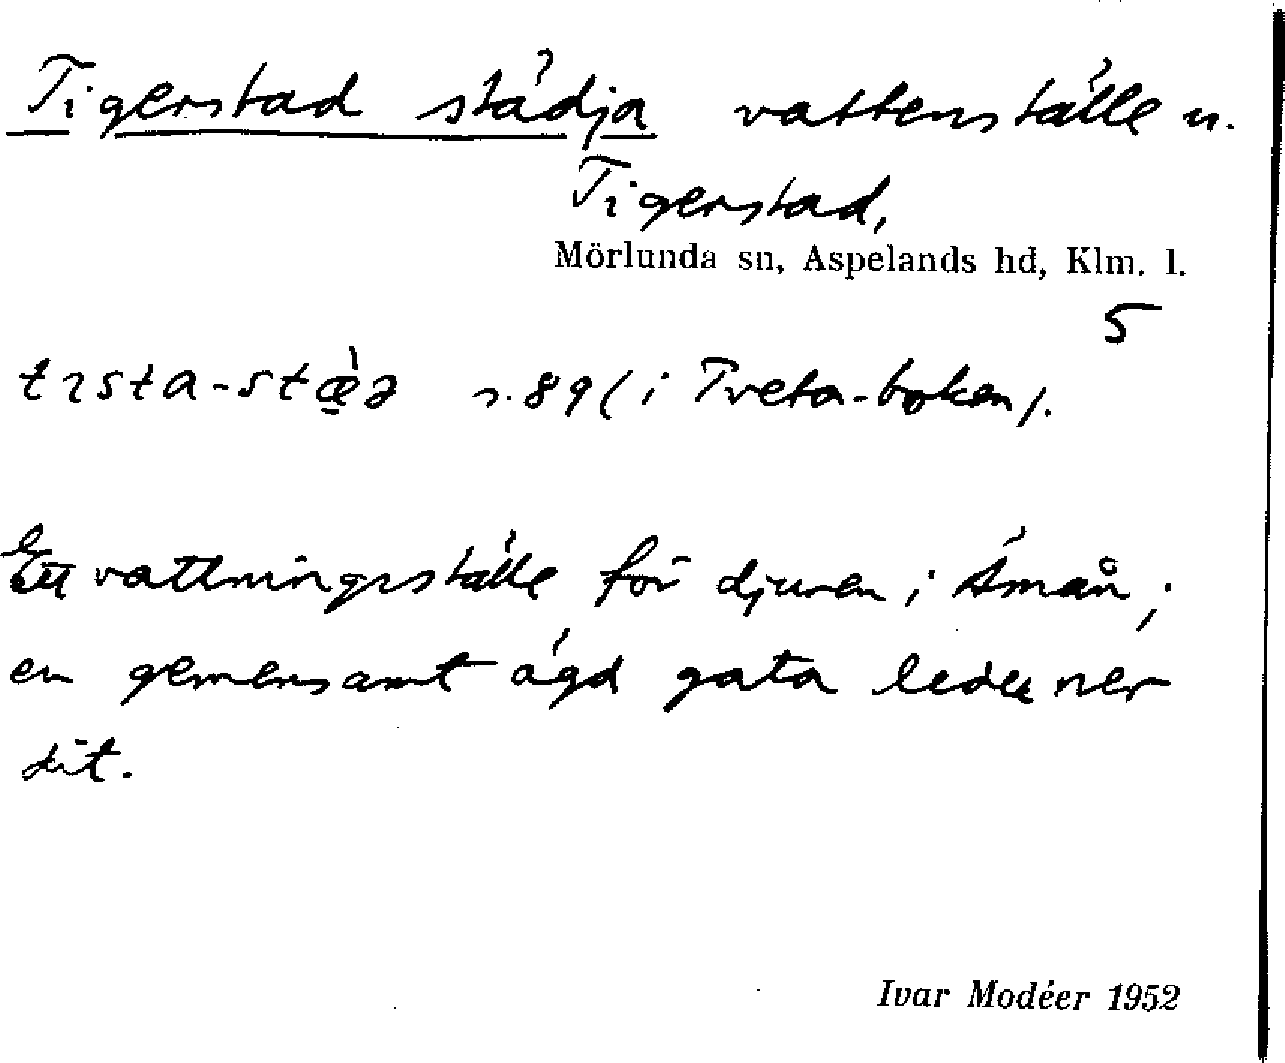 Tigerstad städja vattenställe u.
Tigerstad,
Mörlunda sn, Aspelands hd, Klm. l.
5
tɪsta-stæ̀ə s. 89 (i Tveta-boken).
Ett vattningsställe för djuren i Åmån;
en gemensamt ägd gata leder ner
dit.
Ivar Modéer 1952